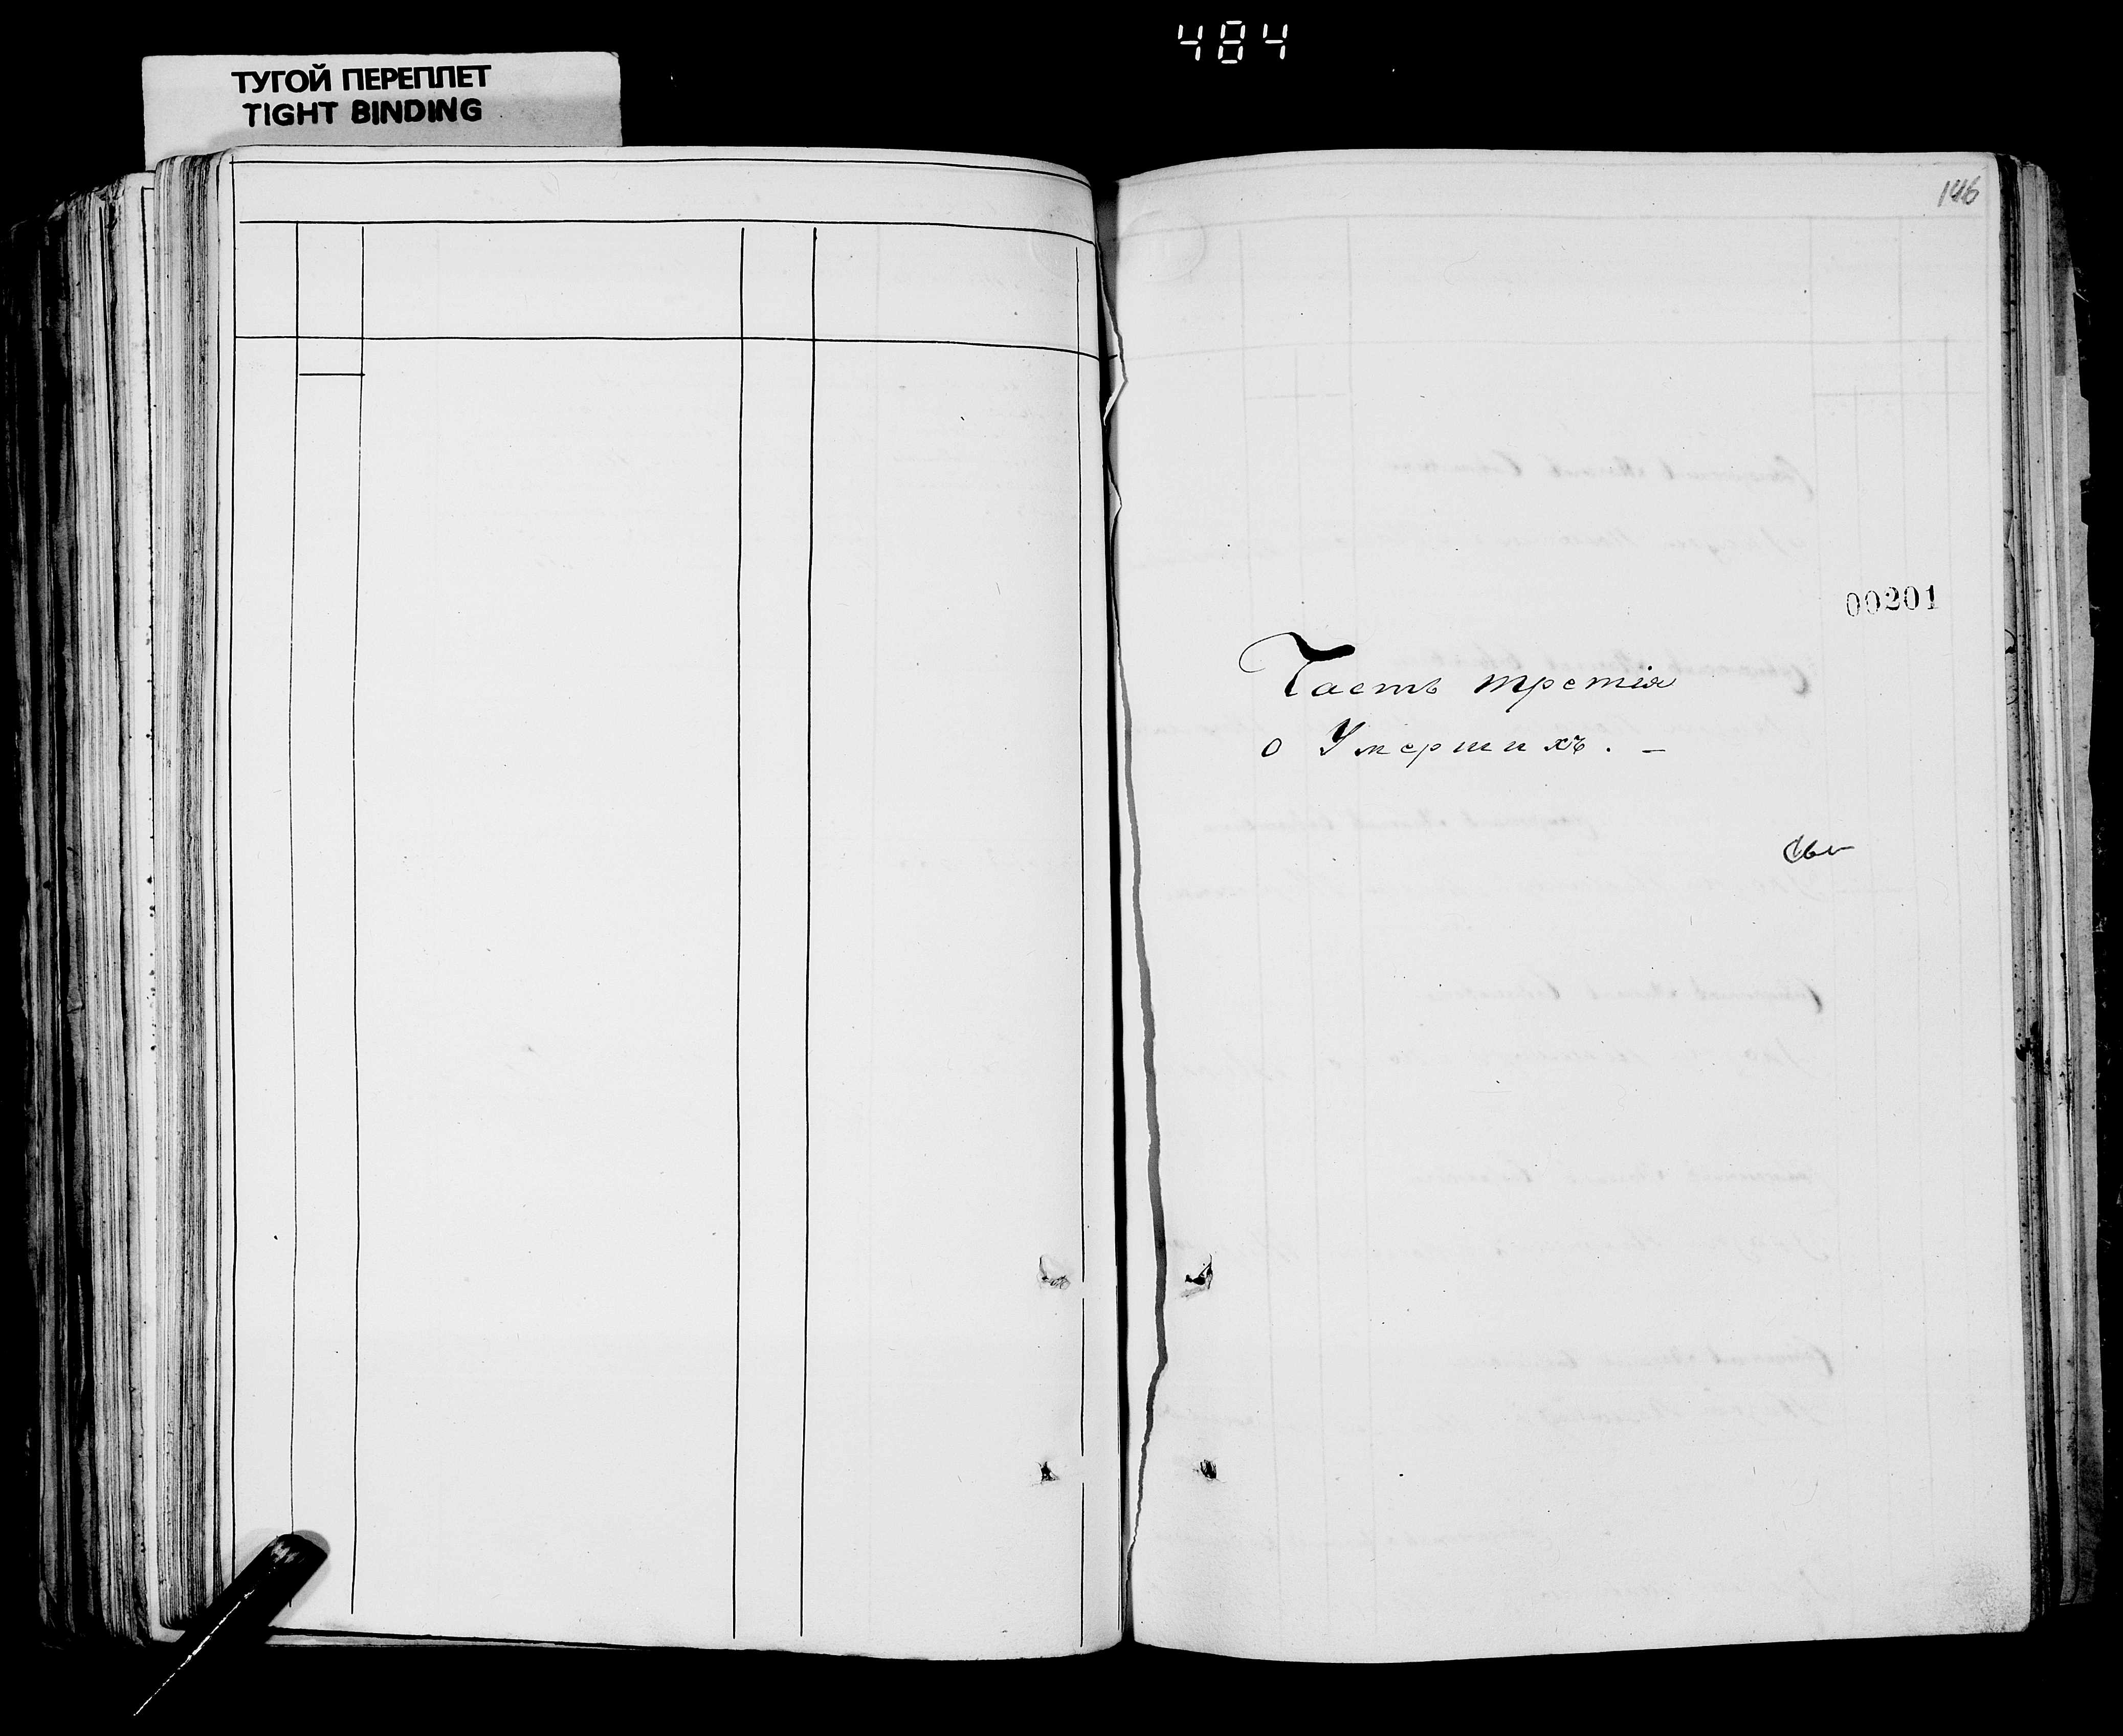 484
ТУГОЙ ПЕРЕПЛЕТ
TIGHT BINDING
146
00201
Часть третія
о Умершихъ. –